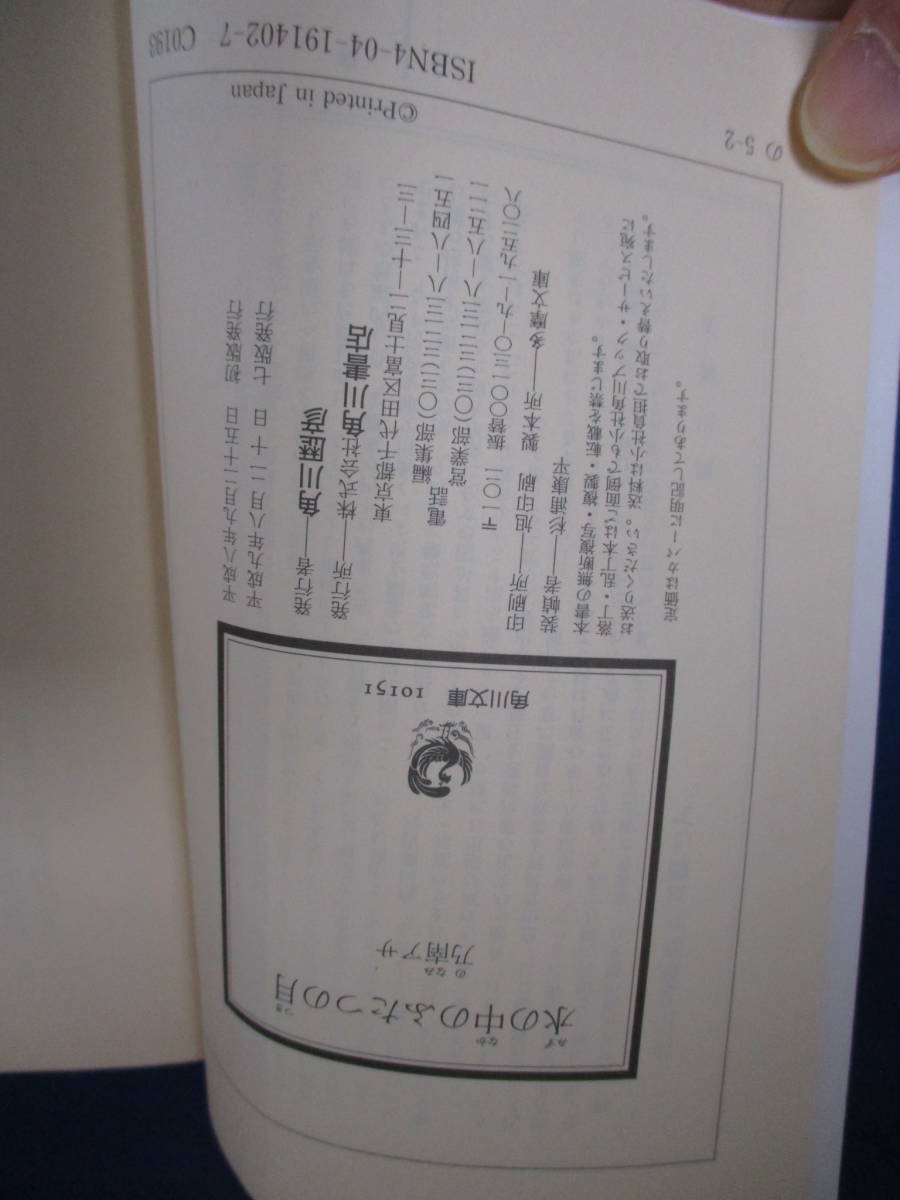 水の中のふたつの月
みず なか つき
乃南アサ
のなみ
角川文庫 10151
平成八年九月二十五日 初版発行
平成九年八月二十日 七版発行
発行者――角川歴彦
発行所――株式会社角川書店
東京都千代田区富士見二―十三―三
電話 編集部(〇三)三二三八―八四五一
営業部(〇三)三二三八―八五二一
〒一〇二 振替〇〇一三〇―九―一九五二〇八
印刷所――旭印刷 製本所――多摩文庫
装幀者――杉浦康平
本書の無断複写・複製・転載を禁じます。
落丁・乱丁本はご面倒でも小社角川ブック・サービス宛に
お送りください。送料は小社負担でお取り替えいたします。
定価はカバーに明記してあります。
©Printed in Japan
の 5-2
ISBN4-04-191402-7 C0193